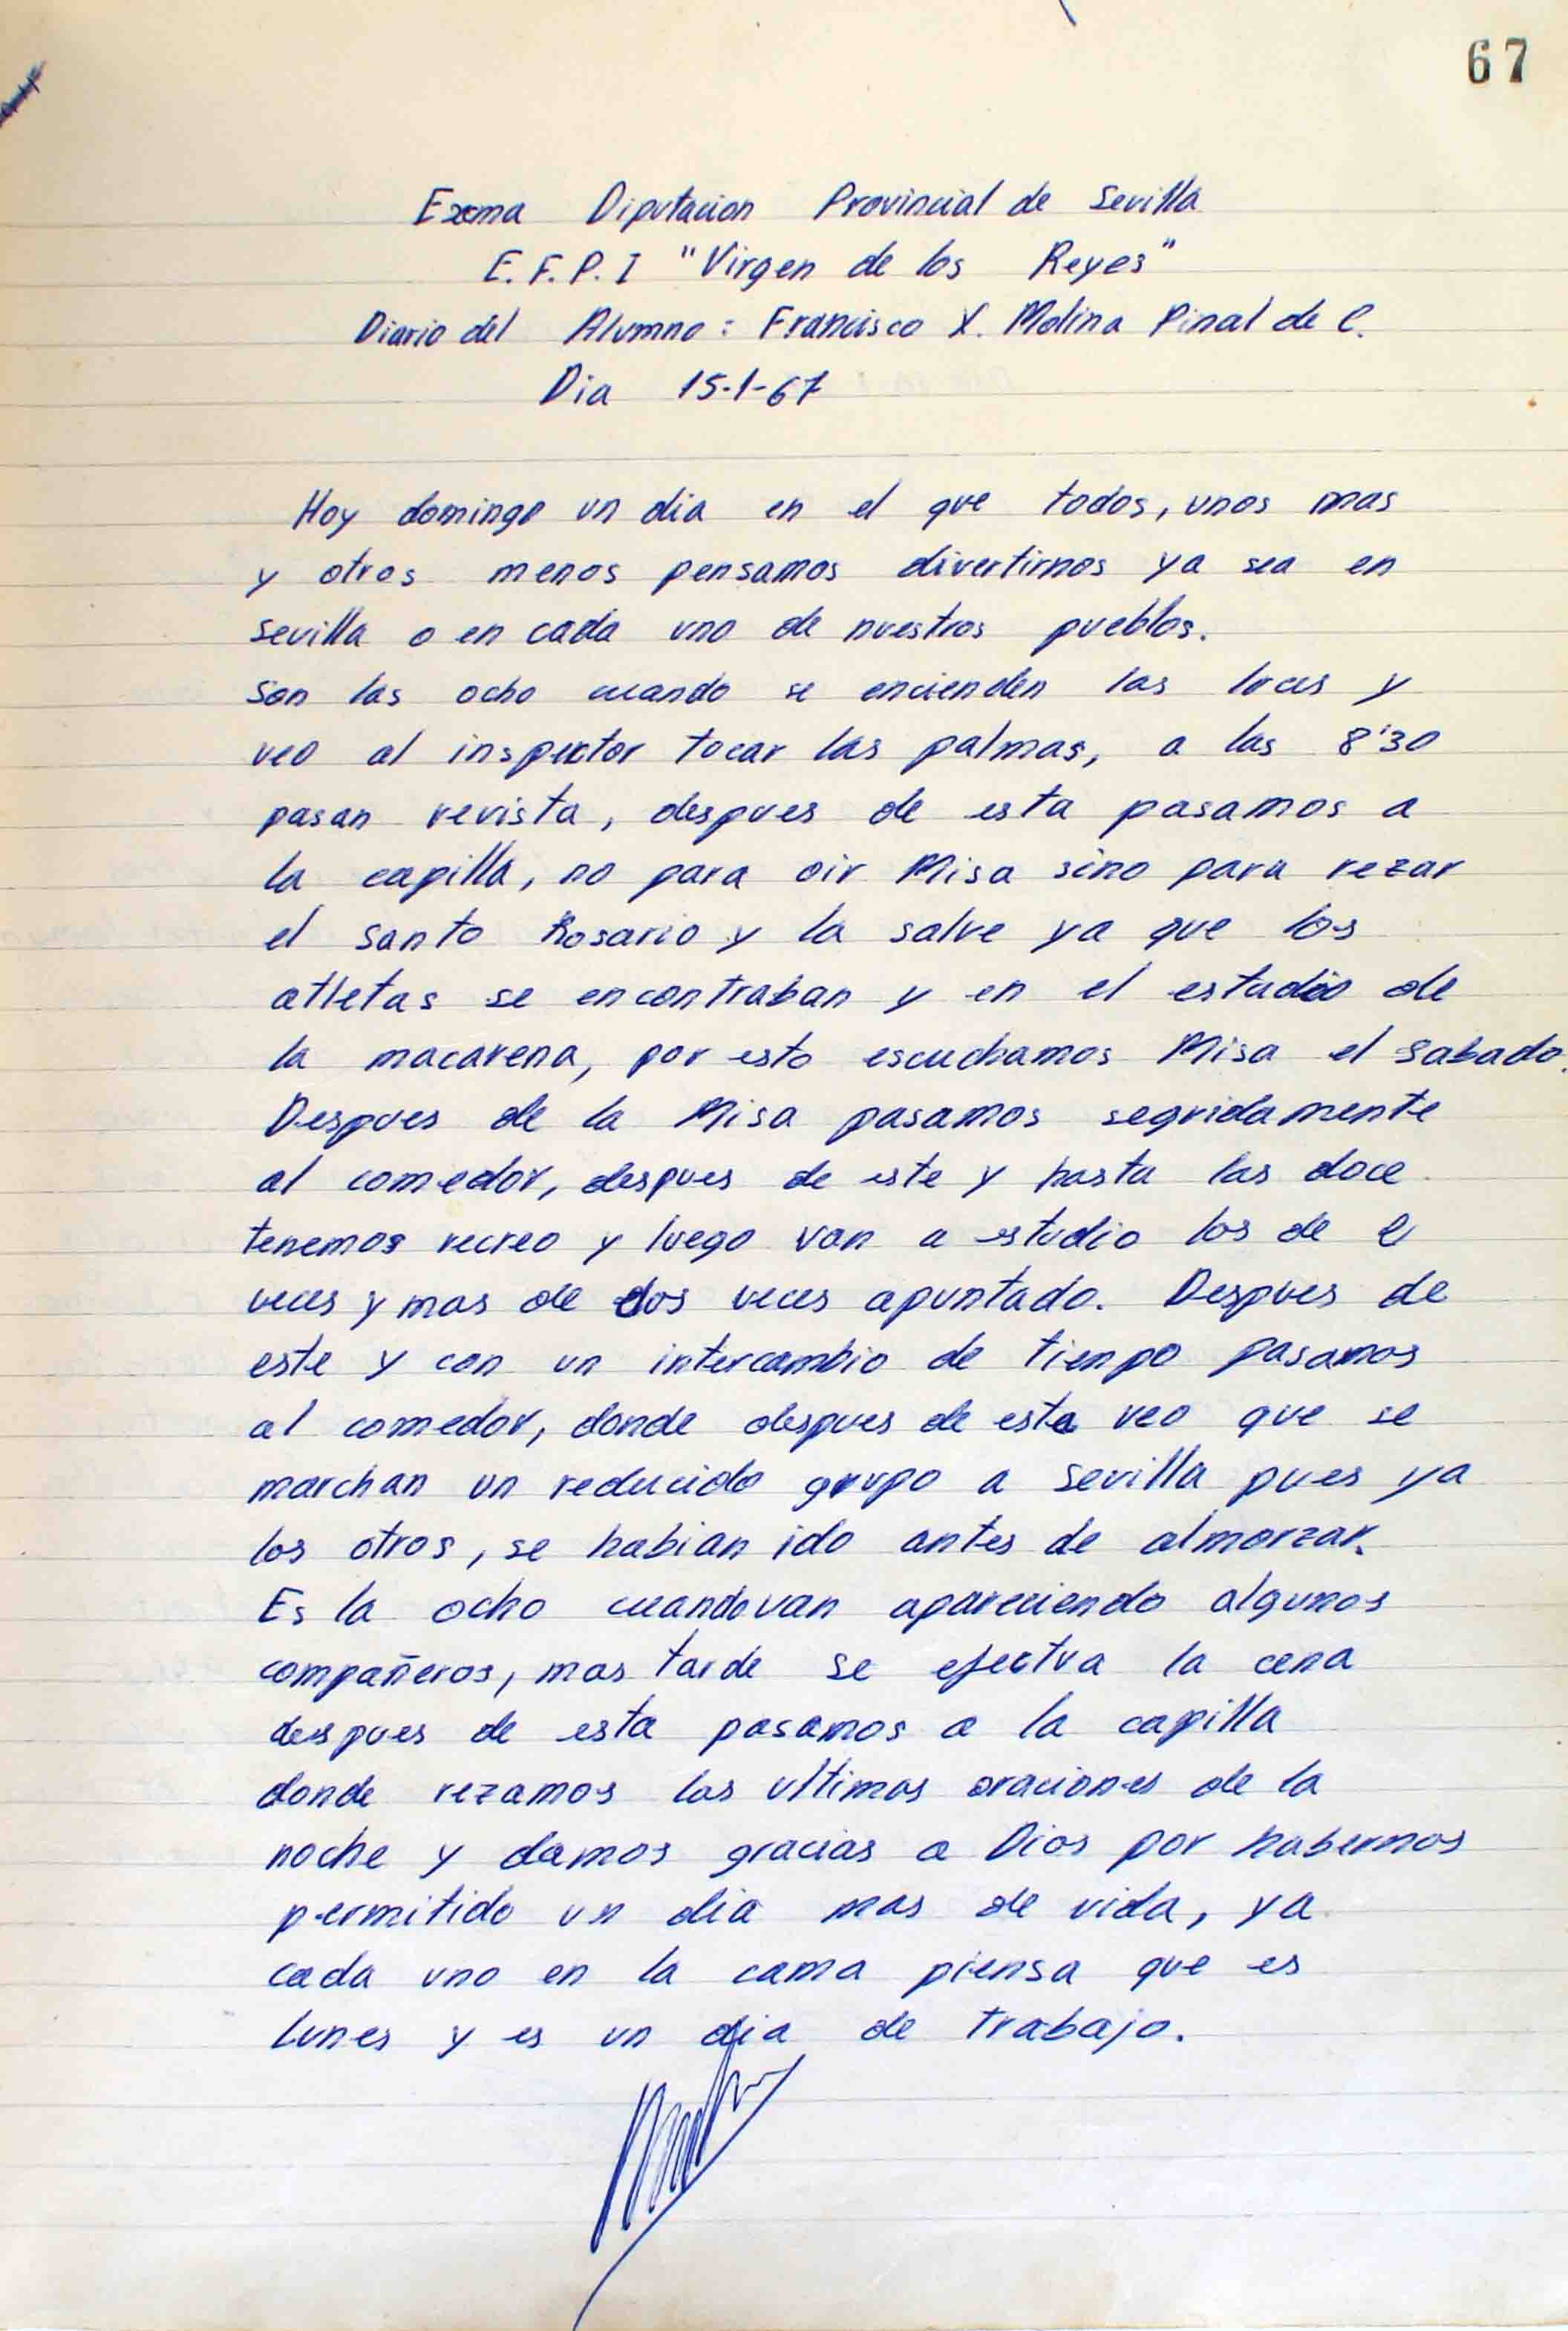 67
Excma Diputacion Provincial de Sevilla
E.F.P.I "Virgen de los Reyes"
Diario del Alumno: Francisco X. Molina Pinal de C.
Dia 15-1-67
Hoy domingo un dia en el que todos, unos mas
y otros menos pensamos divertirnos ya sea en
Sevilla o en cada uno de nuestros pueblos.
Son las ocho cuando se encienden las luces y
veo al inspector tocar las palmas, a las 8'30
pasan revista, despues de esta pasamos a
la capilla, no para oir Misa sino para rezar
el Santo Rosario y la salve ya que los
atletas se encontraban y en el estadio de
la macarena, por esto escuchamos Misa el Sabado.
Despues de la Misa pasamos seguidamente
al comedor, despues de este y hasta las doce
tenemos recreo y luego van a estudio los de
veces y mas de dos veces apuntado. Despues de
este y con un intercambio de tiempo pasamos
al comedor, donde despues de esta veo que se
marchan un reducido grupo a Sevilla pues ya
los otros, se habian ido antes de almorzar.
Es la ocho cuando van apareciendo algunos
compañeros, mas tarde se efectua la cena
despues de esta pasamos a la capilla
donde rezamos las ultimas oraciones de la
noche y damos gracias a Dios por habernos
permitido un dia mas de vida, ya
cada uno en la cama piensa que es
lunes y es un dia de trabajo.